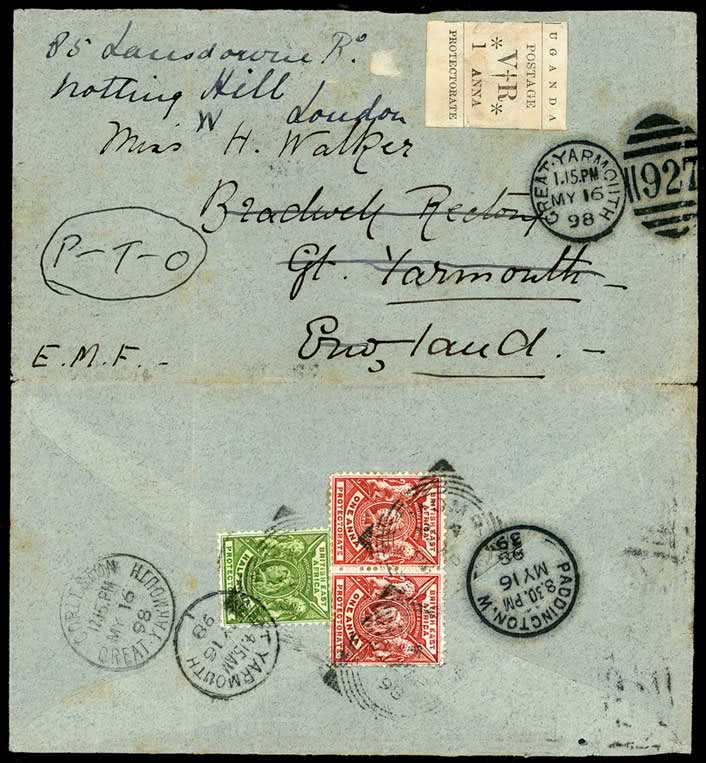 85 Lansdowne Rd.
Notting Hill
W London
Miss H. Walker
Bradwell Rectory
Gt. Yarmouth
England. —
P—T—O
E.M.F. —
UGANDA
POSTAGE
* V†R *
1 ANNA
PROTECTORATE
GREAT·YARMOUTH
1.15.PM
MY 16
98
927
BRITISH EAST
AFRICA
ONE ANNA
PROTECTORATE
BRITISH EAST
AFRICA
HALF
PROTECTORATE
BRITISH EAST
AFRICA
ONE ANNA
PROTECTORATE
98
PADDINGTON.W
8.30.PM
MY 16
98
39
12.15.PM
MY 16
98
GREAT YARMOUTH
YARMOUTH
4.15AM
MY 16
98